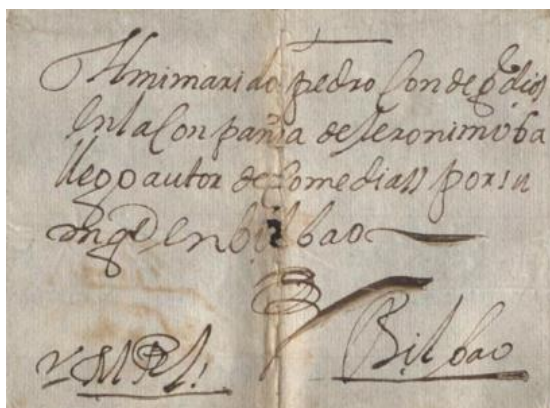 A mi marido pedro Conde g.e dios
En la Conpañia de Jeronimo ba
llejo autor de Comedias por su
mgd en bilbao
Bilbao